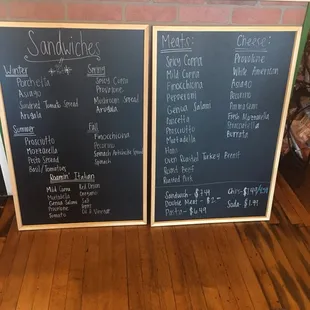 Sandwiches
Winter
Porchetta
Asiago
Sundried Tomato Spread
Arugula
Spring
Spicy Coppa
Provolone
Mushroom Spread
Arugula
Summer
Prosciutto
Mozzarella
Pesto Spread
Basil/Tomato
Fall
Finocchiona
Spinach Artichoke Spread
Spinach
Roamin' Italian
Mild Coppa
Mortadella
Genoa Salami
Provolone
Tomato
Red Onion
Oregano
Salt
Oil & Vinegar
Meats:
Spicy Coppa
Mild Coppa
Finocchiona
Pepperoni
Genoa Salami
Prosciutto
Mortadella
Ham
Oven Roasted Turkey Breast
Roast Beef
Roasted Pork
Cheese:
Provolone
White American
Asiago
Parmesan
Fresh Mozzarella
Burrata
Sandwich - $
Double Meat - $2
Pasta - $6.49
Chips - $
Soda - $1.91